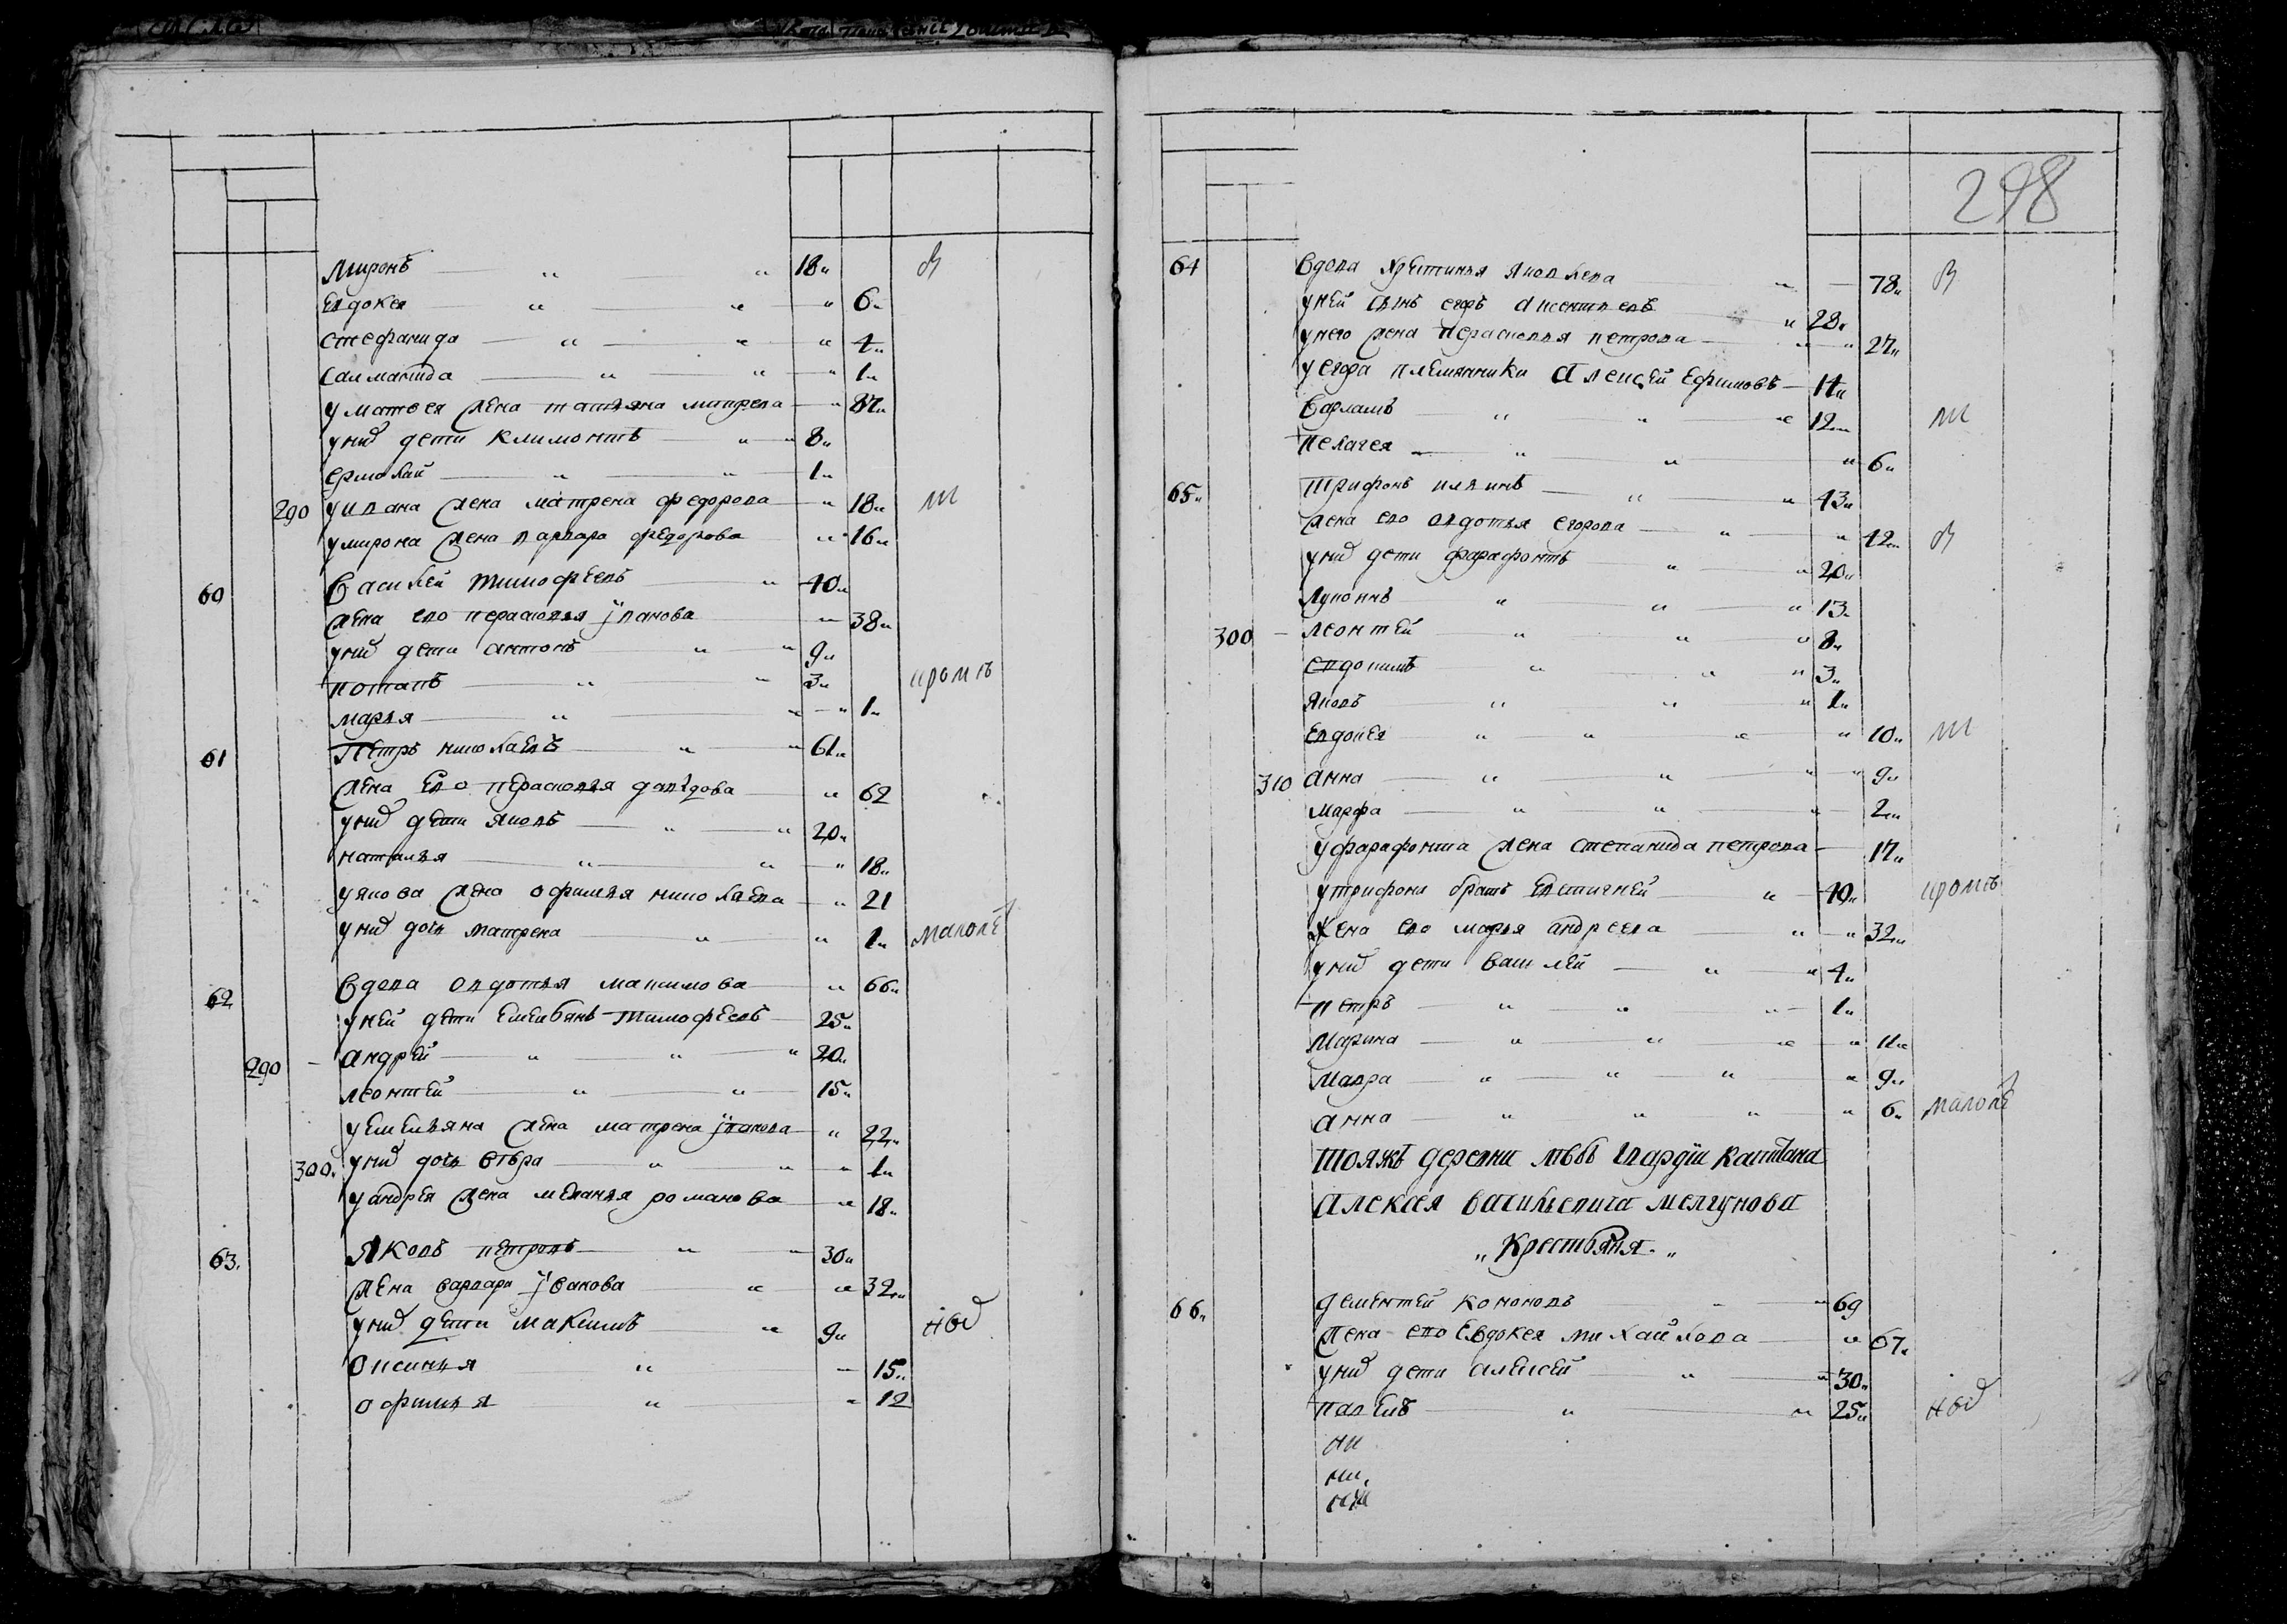 Миронъ 18 В
Евдокея 6
Стефанида 4
Салманида 1
у матвея жена татьяна миирева 37
унихъ дети климонтъ 8
ермолай 1
290 уивана жена матрена федорова 18 Ш
умирона жена варвара федорова 16
60 Василей тимофеевъ 40
жена ево перасковья иванова 38
унихъ дети антонъ 9
потапъ 3 кромѣ
марья 1
61 Петръ николаевъ 61
жена ево перасковья давыдова 62
унихъ дети яковъ 20
наталья 18
уякова жена офимья николаева 21
унихъ дочь матрена 1 малолѣ
62 Вдова овдотья максимова 66
уней дети емельянъ тимофеевъ 25
290 андрей 20
леонтей 15
уемельяна жена матрена иванова 22
300 унихъ дочь вѣра 1
уандрея жена меланья романова 18
63 Яковъ петровъ 30
жена варвара иванова 32
унихъ дети максимъ 9 ною
оксинья 15
офимья 12
298
64 Вдова хрестинья яковлева 78 В
уней сынъ егоръ аксентьевъ 28
унего жена перасковья петрова 27
уегора племянники алексей ефимовъ 14
Варламъ 12 Ш
пелагея 6
65 трифонъ ильинъ 43
жена ево овдотья егорова 42 В
унихъ дети фарафонтъ 20
Лупонъ 13
300 леонтей 8
евдокимъ 3
яковъ 1
евдокея 10 Ш
310 анна 9
марфа 2
уфарафонта жена степанида петрова 17
утрифона братъ евстигней 40 кромѣ
жена ево марья андреева 32
унихъ дети василей 4
петръ 1
Марина 11
Мавра 9
анна 6 малолѣ
тояжъ деревни лѣбъ гвардіи капитана
алексея васильевича мелгунова
Крестьяня
66 дементей кононовъ 69
жена ево Евдокея михайлова 67
унихъ дети алексей 30
павелъ 25 ною
ни
ни